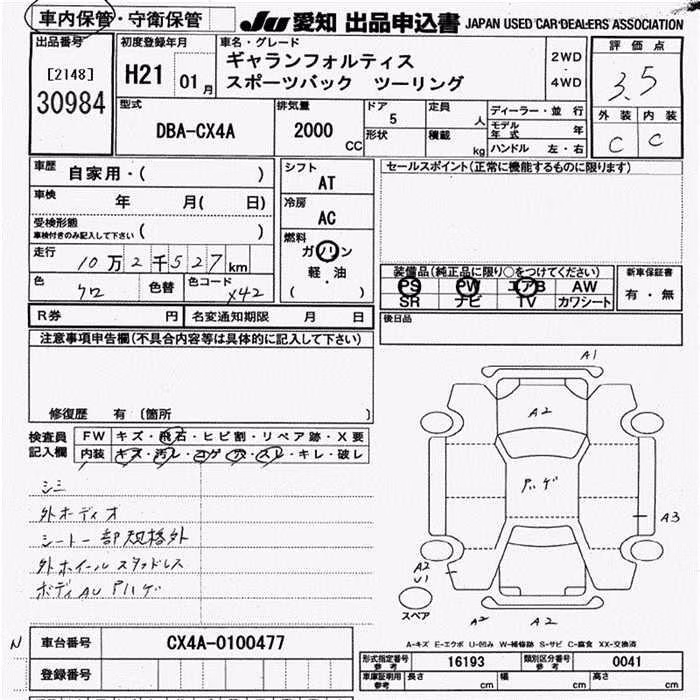 車内保管・守衛保管
JU 愛知 出品申込書 JAPAN USED CAR DEALERS ASSOCIATION
出品番号
[2148]
30984
初度登録年月
H21 01月
車名・グレード
ギャランフォルティス
スポーツバック ツーリング
2WD
・
4WD
評価点
3.5
外装 内装
C C
型式
DBA-CX4A
排気量
2000 CC
ドア
5
形状
定員
人
積載
kg
ディーラー・並行
モデル年式 年
ハンドル 左・右
車歴 自家用・( )
車検 年 月( 日)
受検形態
車検付きのみ記入して下さい ( )
走行
10万2千527km
色 クロ 色替 色コード X42
シフト
AT
冷房
AC
燃料
ガソリン
軽・油
( )
セールスポイント(正常に機能するものに限ります)
装備品(純正品に限り○をつけてください)
PS PW エアB AW
SR ナビ TV カワシート
新車保証書
有・無
R券 円 名変通知期限 月 日
後日品
注意事項申告欄(不具合内容等は具体的に記入して下さい)
修復歴 有 〔箇所 〕
検査員記入欄
FW キズ・飛石・ヒビ割・リペア跡・X要
内装 キズ・汚レ・コゲ・穴・スレ・キレ・破レ
シミ
外オーディオ
シート一部規格外
外ホイールスタッドレス
ボディAU Pハゲ
A1
A2
Pハゲ
A3
A2
U1
スペア
A2 A2
A-キズ E-エクボ U-凹み W-補修跡 S-サビ C-腐食 XX-交換済
N 車台番号 CX4A-0100477
登録番号
形式指定番号 参考 16193 類別区分番号 参考 0041
車庫証明用 参考 長さ cm 幅 cm 高さ cm